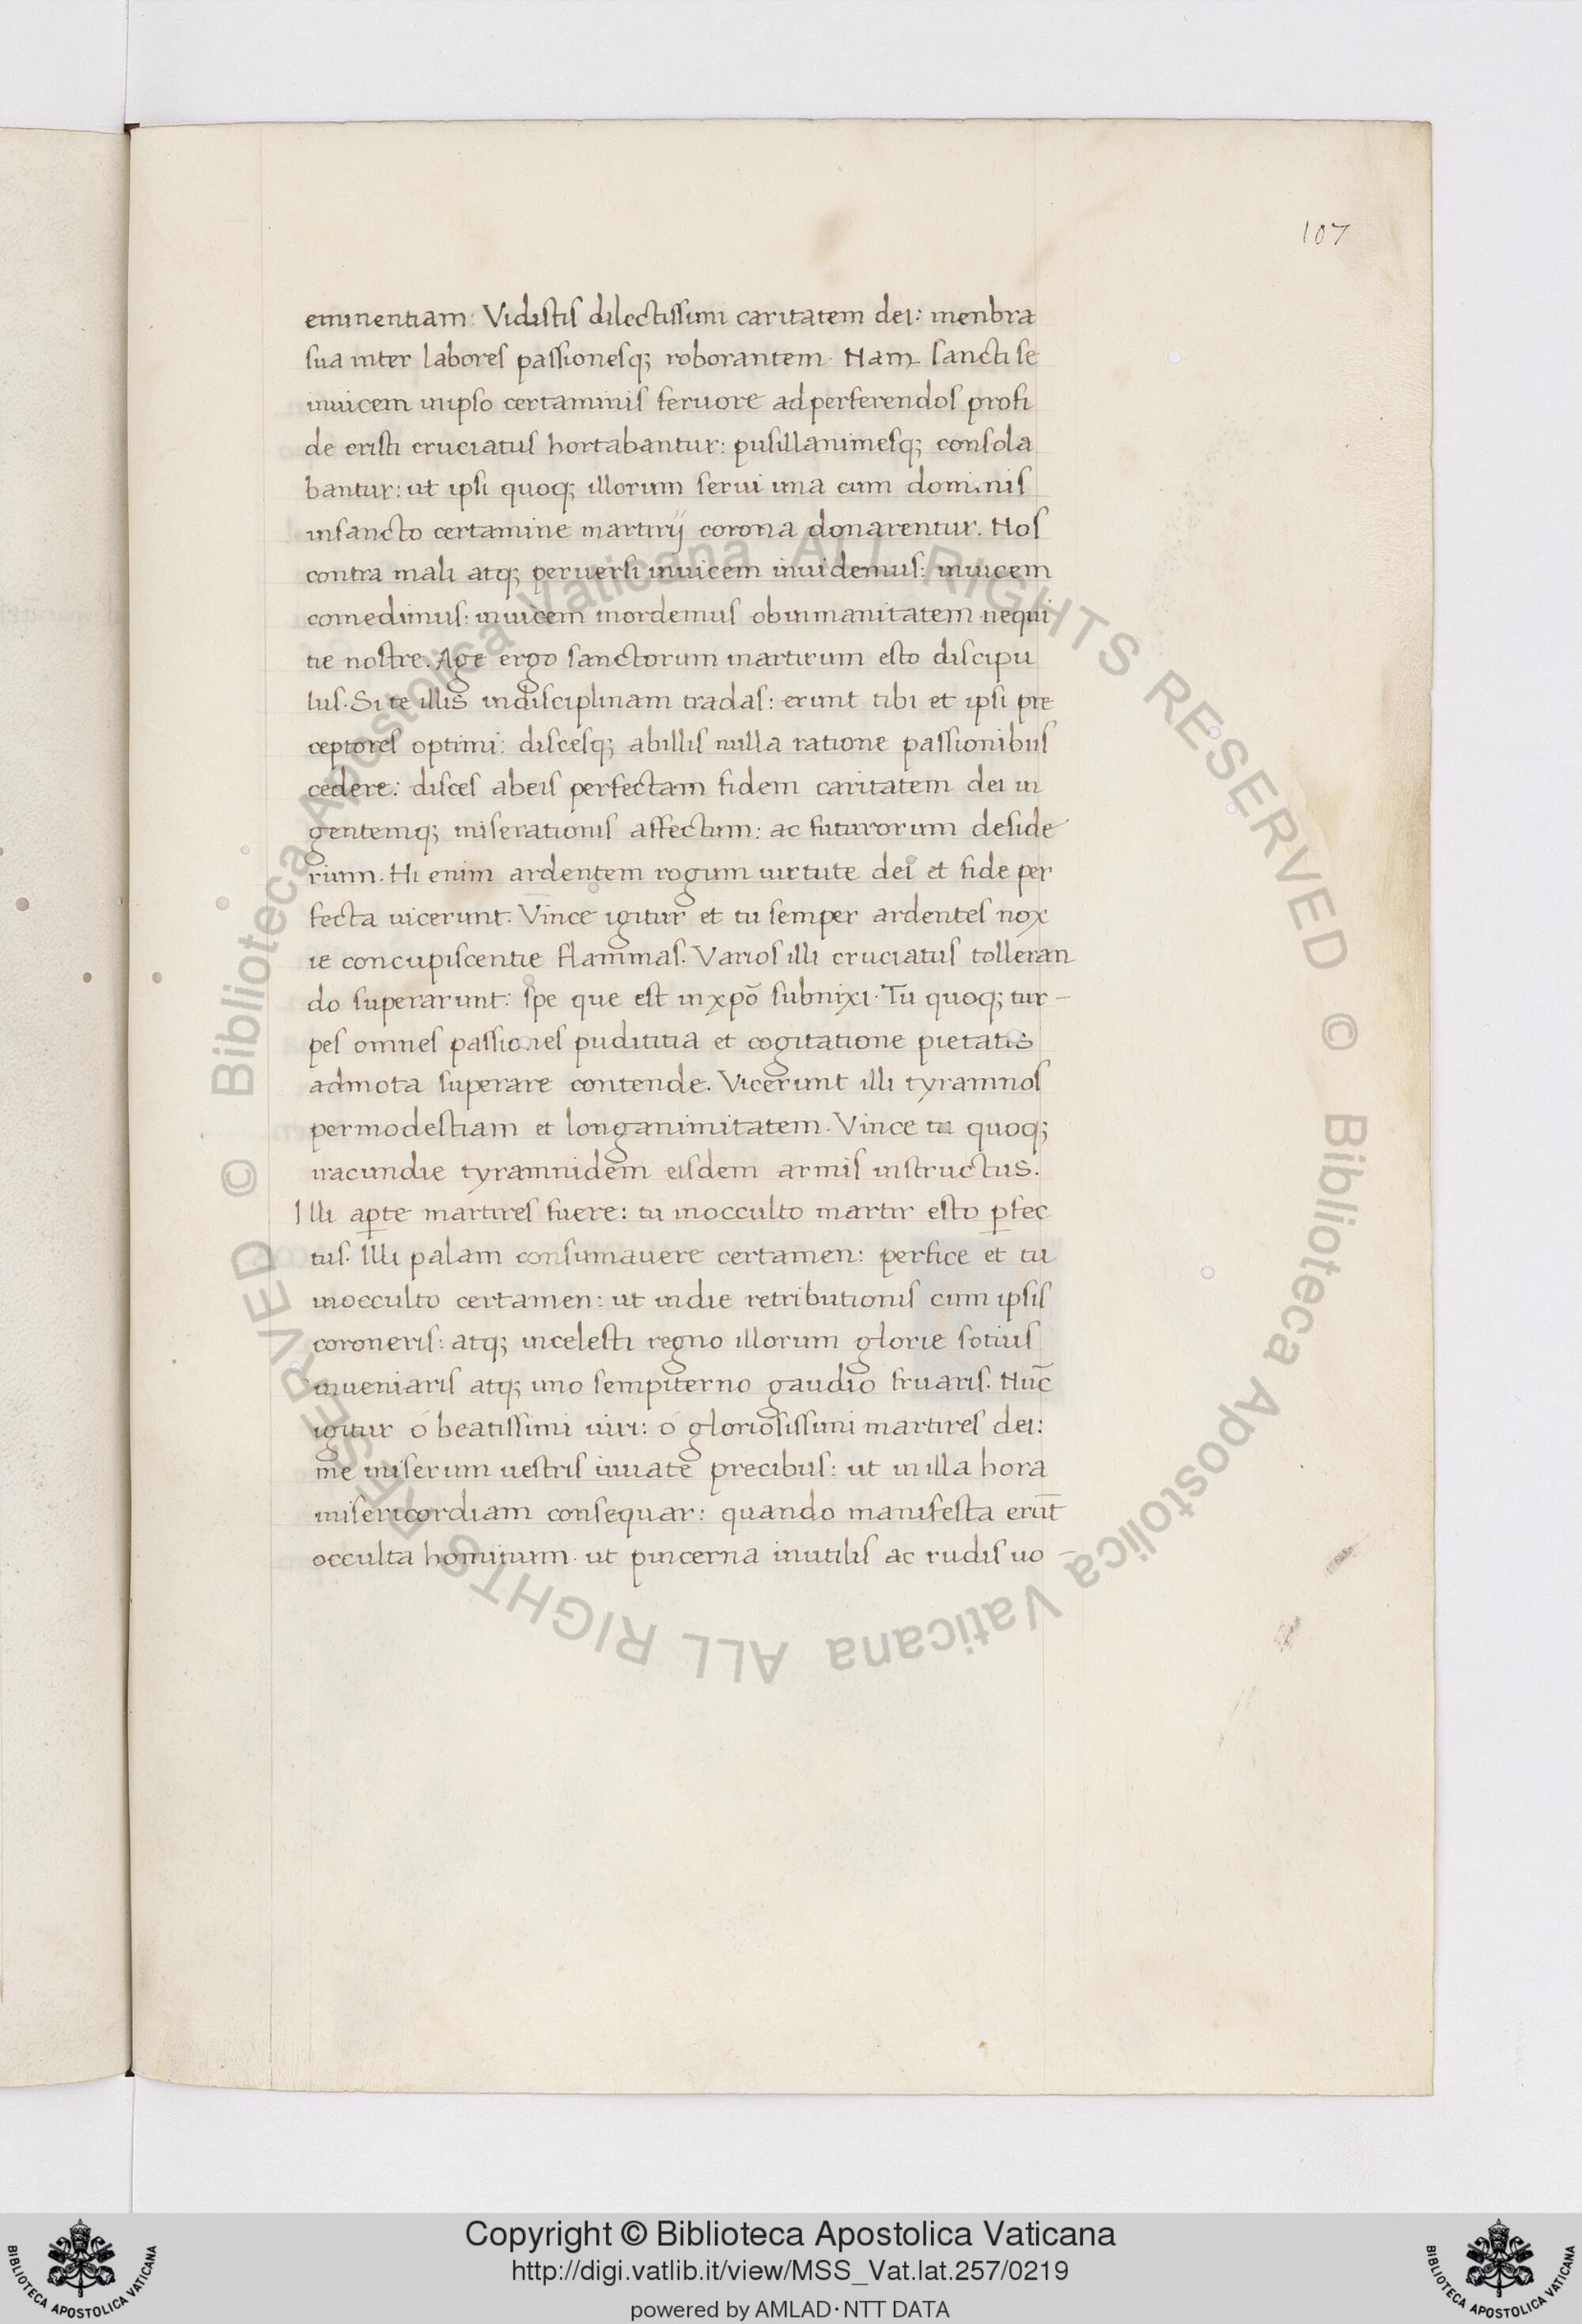 107
eminentiam: Vidistis dilectissimi caritatem dei: menbra
sua inter labores passionesq; roborantem. Nam sancti se
inuicem inipso certaminis feruore adperferendos profi
de cristi cruciatus hortabantur: pusillanimesq; consola
bantur: ut ipsi quoq; illorum serui una cum dominis
insancto certamine martirij corona donarentur. Nos
contra mali atq; peruersi inuicem inuidemus: inuicem
comedimus: inuicem mordemus obinmanitatem nequi
tie nostre. Age ergo sanctorum martirum esto discipu
lus. Si te illis indisciplinam tradas: erunt tibi et ipsi pre
ceptores optimi: discesq; abillis nulla ratione passionibus
cedere: disces abeis perfectam fidem caritatem dei in
gentemq; miserationis affectum: ac futurorum deside
rium. Hi enim ardentem rogum uirtute dei et fide per
fecta uicerunt. Vince igitur et tu semper ardentes nox
ie concupiscentie flammas. Varios illi cruciatus tolleran
do superarunt: spe que est inxpō subnixi. Tu quoq; tur-
pes omnes passiones pudititia et cogitatione pietatis
admota superare contende. Vicerunt illi tyramnos
permodestiam et longanimitatem. Vince tu quoq;
iracundie tyramnidem eisdem armis instructus.
Illi aꝑte martires fuere: tu inocculto martir esto ꝑfec
tus. Illi palam consumauere certamen: perfice et tu
inocculto certamen: ut indie retributionis cum ipsis
coroneris: atq; incelesti regno illorum glorie sotius
inueniaris atq; uno sempiterno gaudio fruaris. Nuc̄
igitur ó beatissimi uiri: ó gloriosissimi martires dei:
me miserum uestris iuuate precibus: ut inilla hora
misericordiam consequar: quando manifesta erūt
occulta hominum. ut pincerna inutilis ac rudis uo-
© Biblioteca Apostolica Vaticana ALL RIGHTS RESERVED © Biblioteca Apostolica Vaticana ALL RIGHTS RESERVED
Copyright © Biblioteca Apostolica Vaticana
http://digi.vatlib.it/view/MSS_Vat.lat.257/0219
powered by AMLAD·NTT DATA
BIBLIOTECA APOSTOLICA VATICANA
BIBLIOTECA APOSTOLICA VATICANA